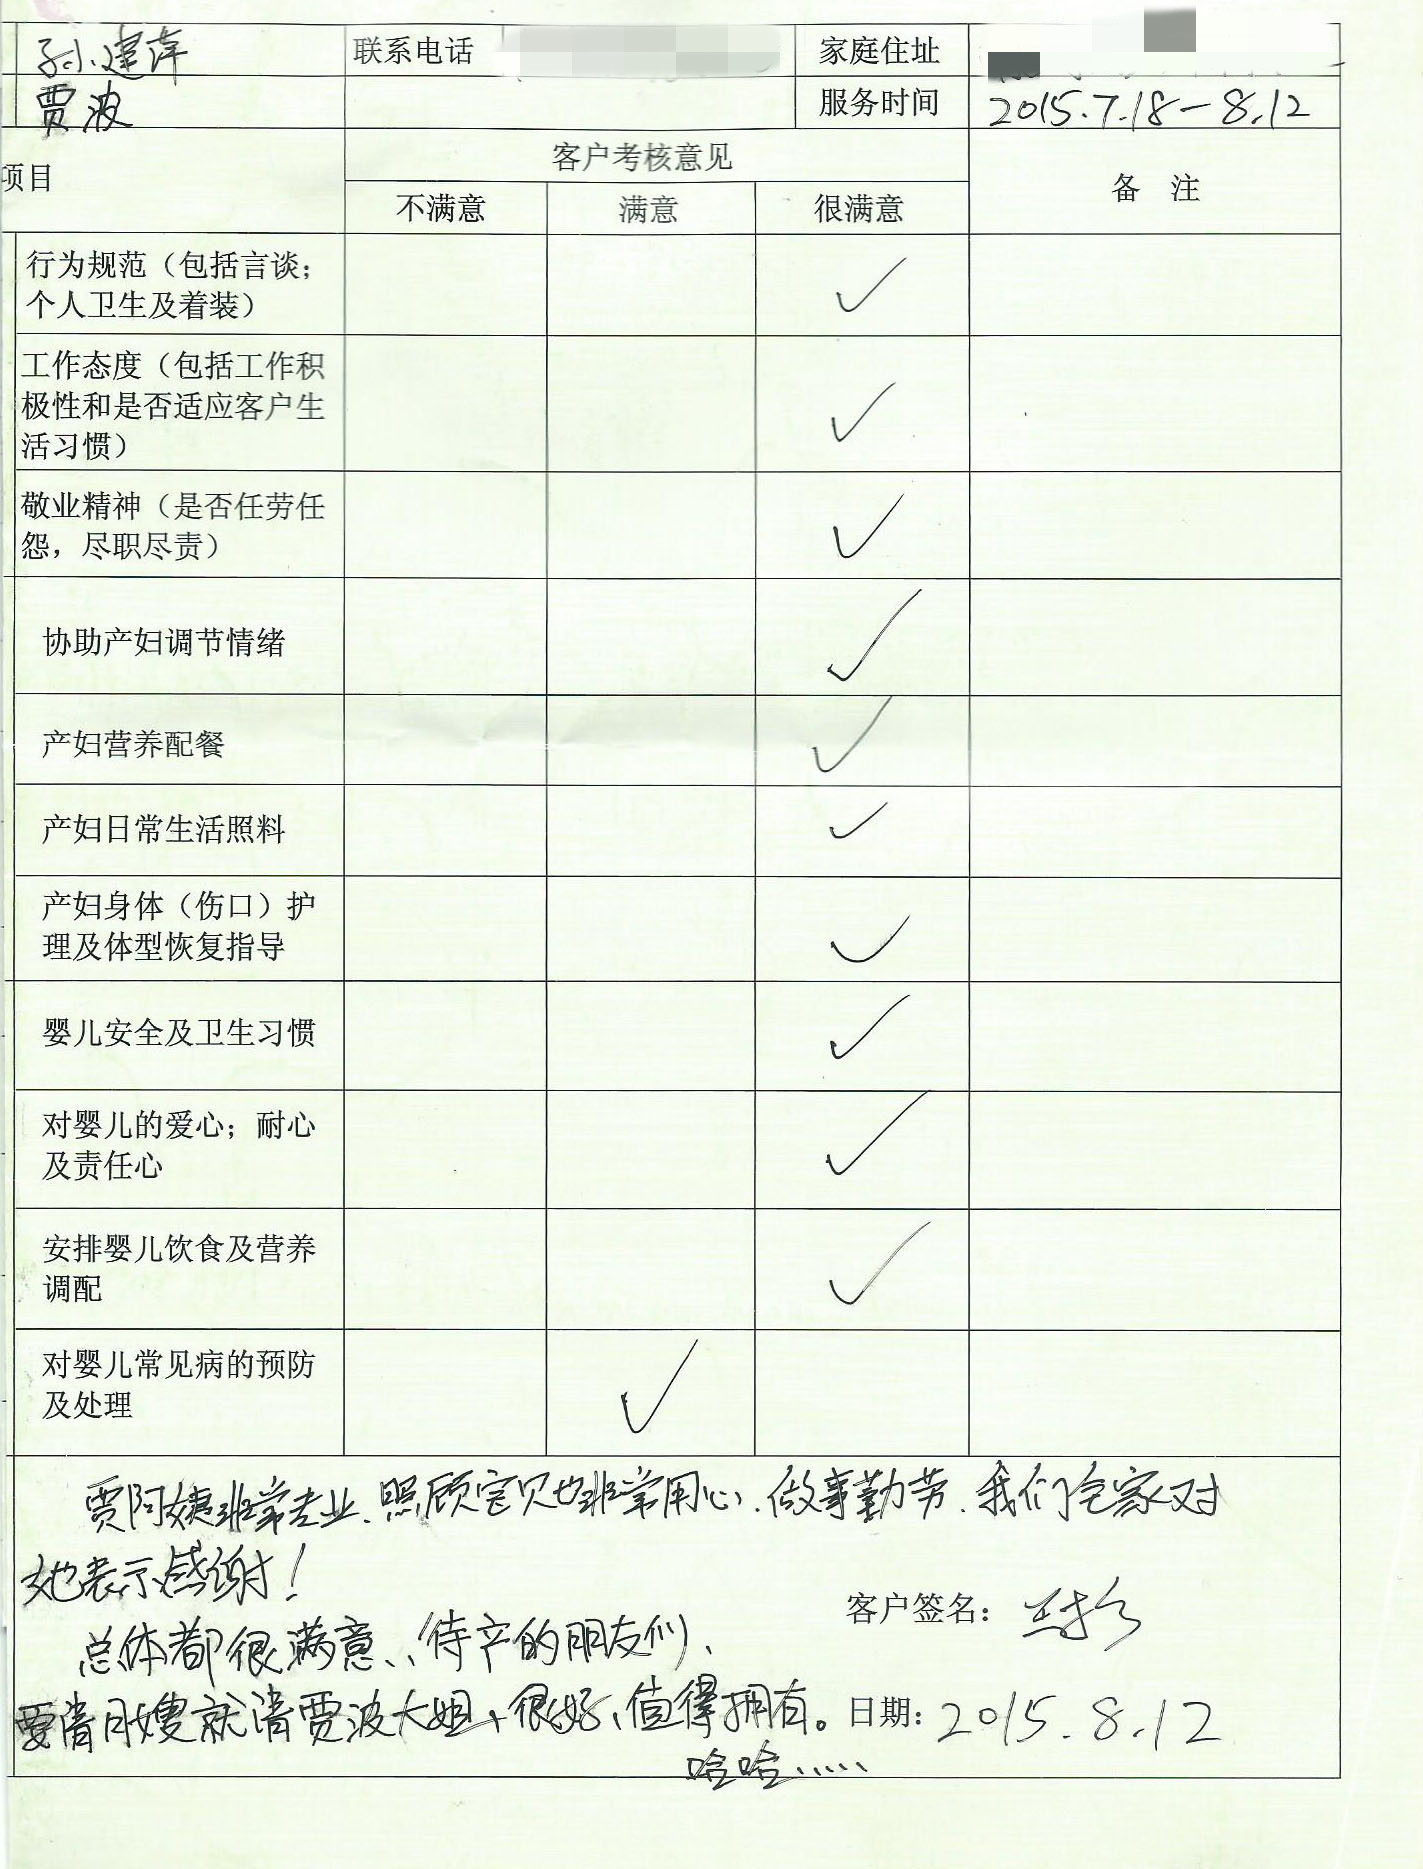 孙建萍 联系电话 家庭住址
贾波 服务时间 2015.7.18-8.12
项目 客户考核意见 备 注
不满意 满意 很满意
行为规范（包括言谈；
个人卫生及着装）
工作态度（包括工作积
极性和是否适应客户生
活习惯）
敬业精神（是否任劳任
怨，尽职尽责）
协助产妇调节情绪
产妇营养配餐
产妇日常生活照料
产妇身体（伤口）护
理及体型恢复指导
婴儿安全及卫生习惯
对婴儿的爱心；耐心
及责任心
安排婴儿饮食及营养
调配
对婴儿常见病的预防
及处理
贾阿姨非常专业、照顾宝贝也非常用心、做事勤劳、我们全家对
她表示感谢！
客户签名：
总体都很满意、、待产的朋友们、
要请月嫂就请贾波大姐、很好、值得拥有。 日期：2015.8.12
哈哈……